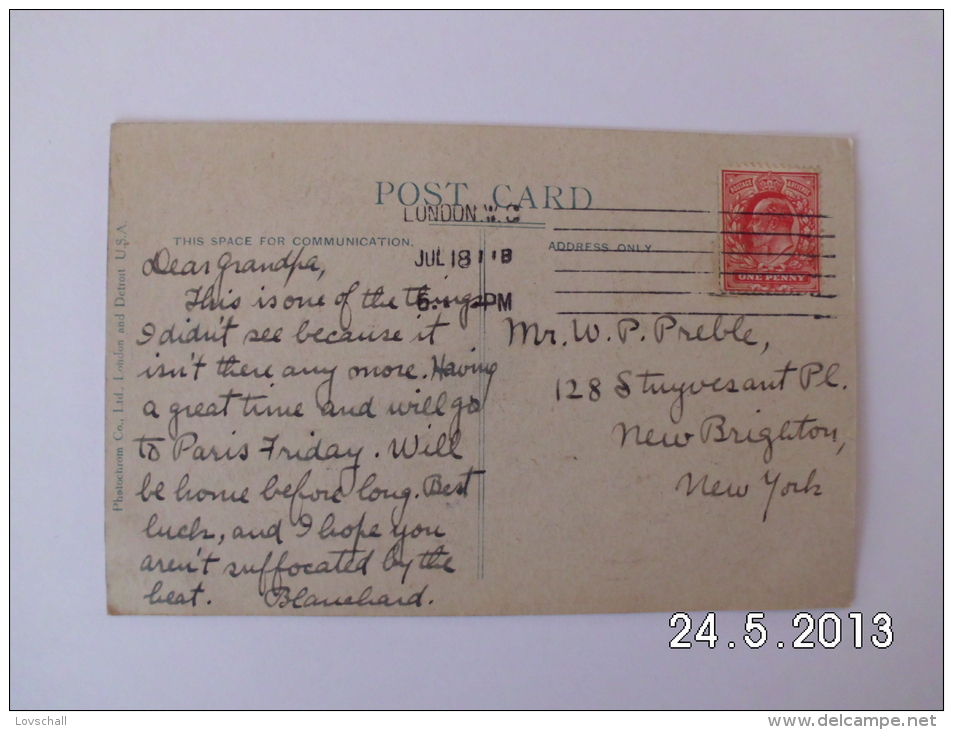 POST CARD
LONDON. W. C
THIS SPACE FOR COMMUNICATION.
ADDRESS ONLY
JUL 18 11
PM
Dear Grandpa,
This is one of the things
I didn't see because it
isn't there any more. Having
a great time and will go
to Paris Friday. Will
be home before long. Best
luck, and I hope you
aren't suffocated by the
heat. Blanchard.
Mr. W. P. Preble,
128 Stuyvesant Pl.
New Brighton,
New York
Photochrom Co., Ltd., London and Detroit U.S.A.
POSTAGE & REVENUE
ONE PENNY
24.5.2013
Lovschall
www.delcampe.net